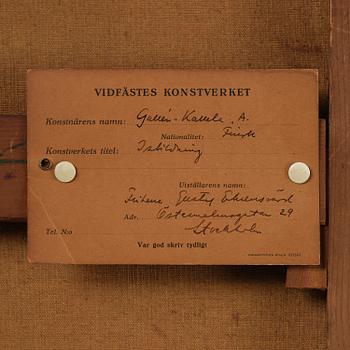 VIDFÄSTES KONSTVERKET
Konstnärens namn: Gallén-Kallela, A.
Nationalitet: Finsk
Konstverkets titel: Islossning
Utställarens namn:
Friherre Gustaf Ehrensvärd
Adr. Östermalmsgatan 29
Tel. N:o Stockholm
Var god skriv tydligt